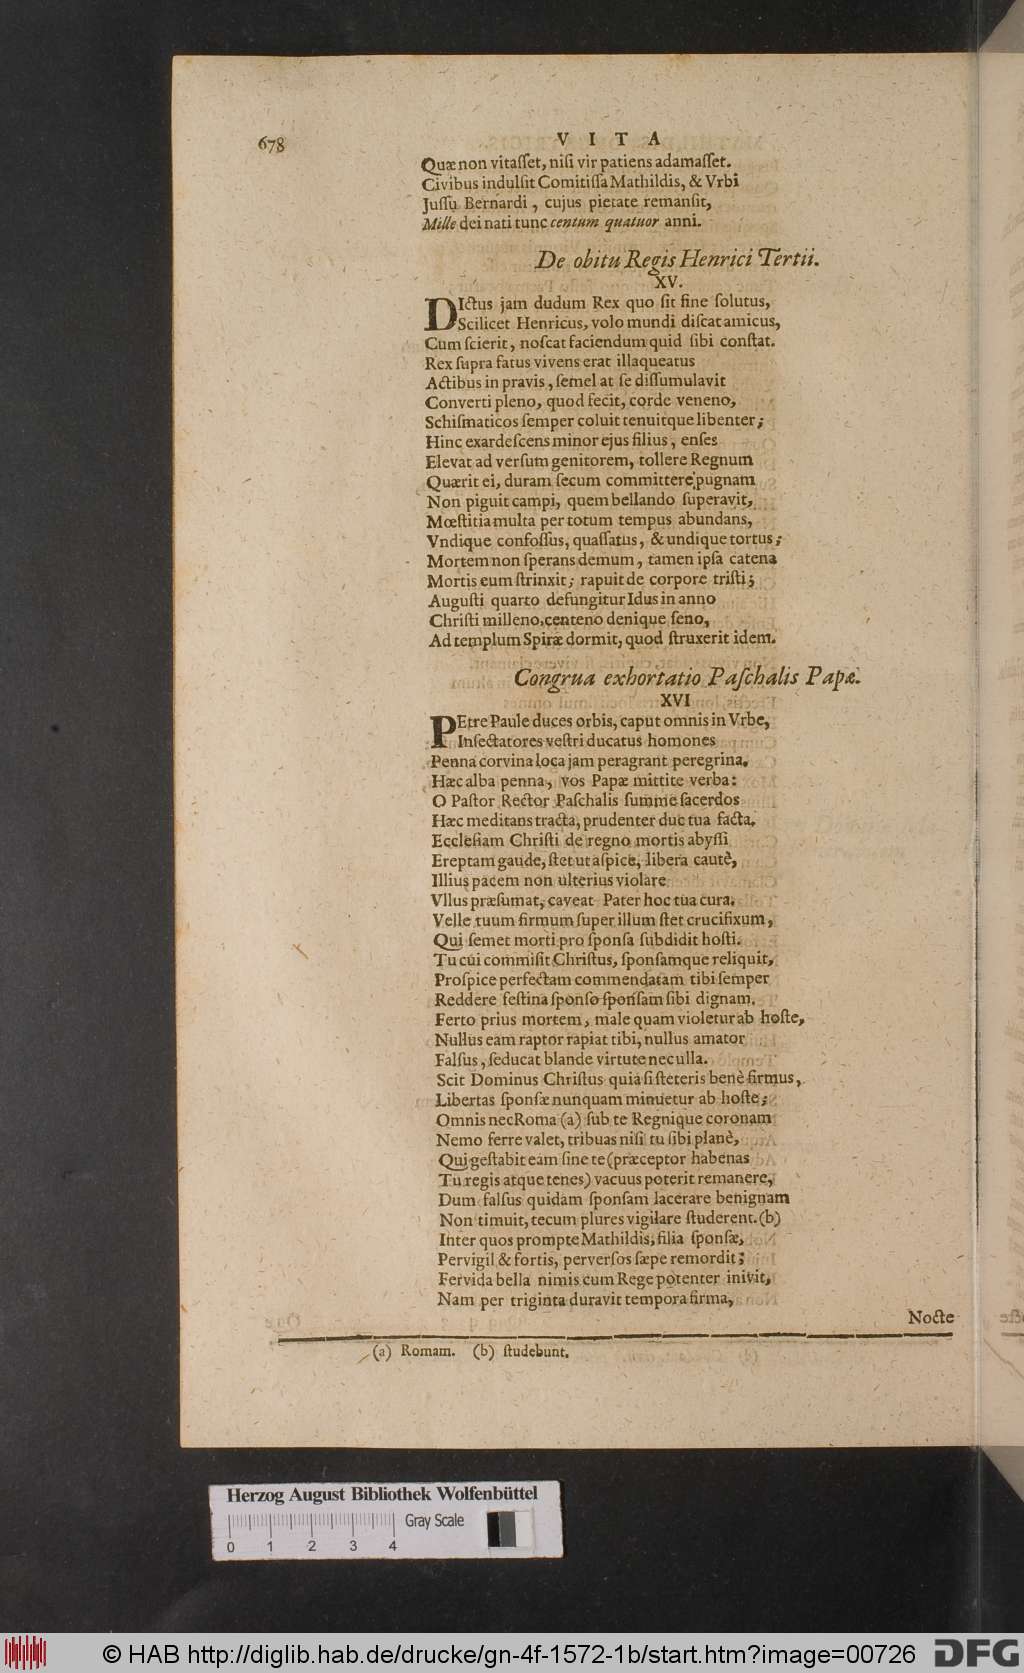 678
V I T A
Quæ non vitasset, nisi vir patiens adamasset.
Civibus indulsit Comitissa Mathildis, & Vrbi
Jussu Bernardi, cujus pietate remansit,
Mille dei nati tunc centum quatuor anni.
De obitu Regis Henrici Tertii.
XV.
DIctus jam dudum Rex quo sit fine solutus,
Scilicet Henricus, volo mundi discat amicus,
Cum scierit, noscat faciendum quid sibi constat.
Rex supra fatus vivens erat illaqueatus
Actibus in pravis, semel at se dissumulavit
Converti pleno, quod fecit, corde veneno,
Schismaticos semper coluit tenuitque libenter;
Hinc exardescens minor ejus filius, enses
Elevat ad versum genitorem, tollere Regnum
Quærit ei, duram secum committere pugnam
Non piguit campi, quem bellando superavit,
Mœstitia multa per totum tempus abundans,
Vndique confossus, quassatus, & undique tortus;
Mortem non sperans demum, tamen ipsa catena
Mortis eum strinxit; rapuit de corpore tristi;
Augusti quarto defungitur Idus in anno
Christi milleno, centeno denique seno,
Ad templum Spiræ dormit, quod struxerit idem.
Congrua exhortatio Paschalis Papæ.
XVI
PEtre Paule duces orbis, caput omnis in Vrbe,
Insectatores vestri ducatus homones
Penna corvina loca jam peragrant peregrina.
Hæc alba penna, vos Papæ mittite verba:
O Pastor Rector Paschalis summe sacerdos
Hæc meditans tracta, prudenter duc tua facta.
Ecclesiam Christi de regno mortis abyssi
Ereptam gaude, stet ut aspice, libera cautè,
Illius pacem non ulterius violare
Vllus præsumat, caveat Pater hoc tua cura.
Velle tuum firmum super illum stet crucifixum,
Qui semet morti pro sponsa subdidit hosti.
Tu cui commisit Christus, sponsamque reliquit,
Prospice perfectam commendatam tibi semper
Reddere festina sponso sponsam sibi dignam.
Ferto prius mortem, male quam violetur ab hoste,
Nullus eam raptor rapiat tibi, nullus amator
Falsus, seducat blande virtute nec ulla.
Scit Dominus Christus quia si steteris benè firmus,
Libertas sponsæ nunquam minuetur ab hoste;
Omnis nec Roma (a) sub te Regnique coronam
Nemo ferre valet, tribuas nisi tu sibi planè,
Qui gestabit eam sine te (præceptor habenas
Tu regis atque tenes) vacuus poterit remanere,
Dum falsus quidam sponsam lacerare benignam
Non timuit, tecum plures vigilare studerent. (b)
Inter quos prompte Mathildis, filia sponsæ,
Pervigil & fortis, perversos sæpe remordit;
Fervida bella nimis cum Rege potenter inivit,
Nam per triginta duravit tempora firma,
Nocte
(a) Romam. (b) studebunt.
Herzog August Bibliothek Wolfenbüttel
Gray Scale
0 1 2 3 4
© HAB http://diglib.hab.de/drucke/gn-4f-1572-1b/start.htm?image=00726
DFG